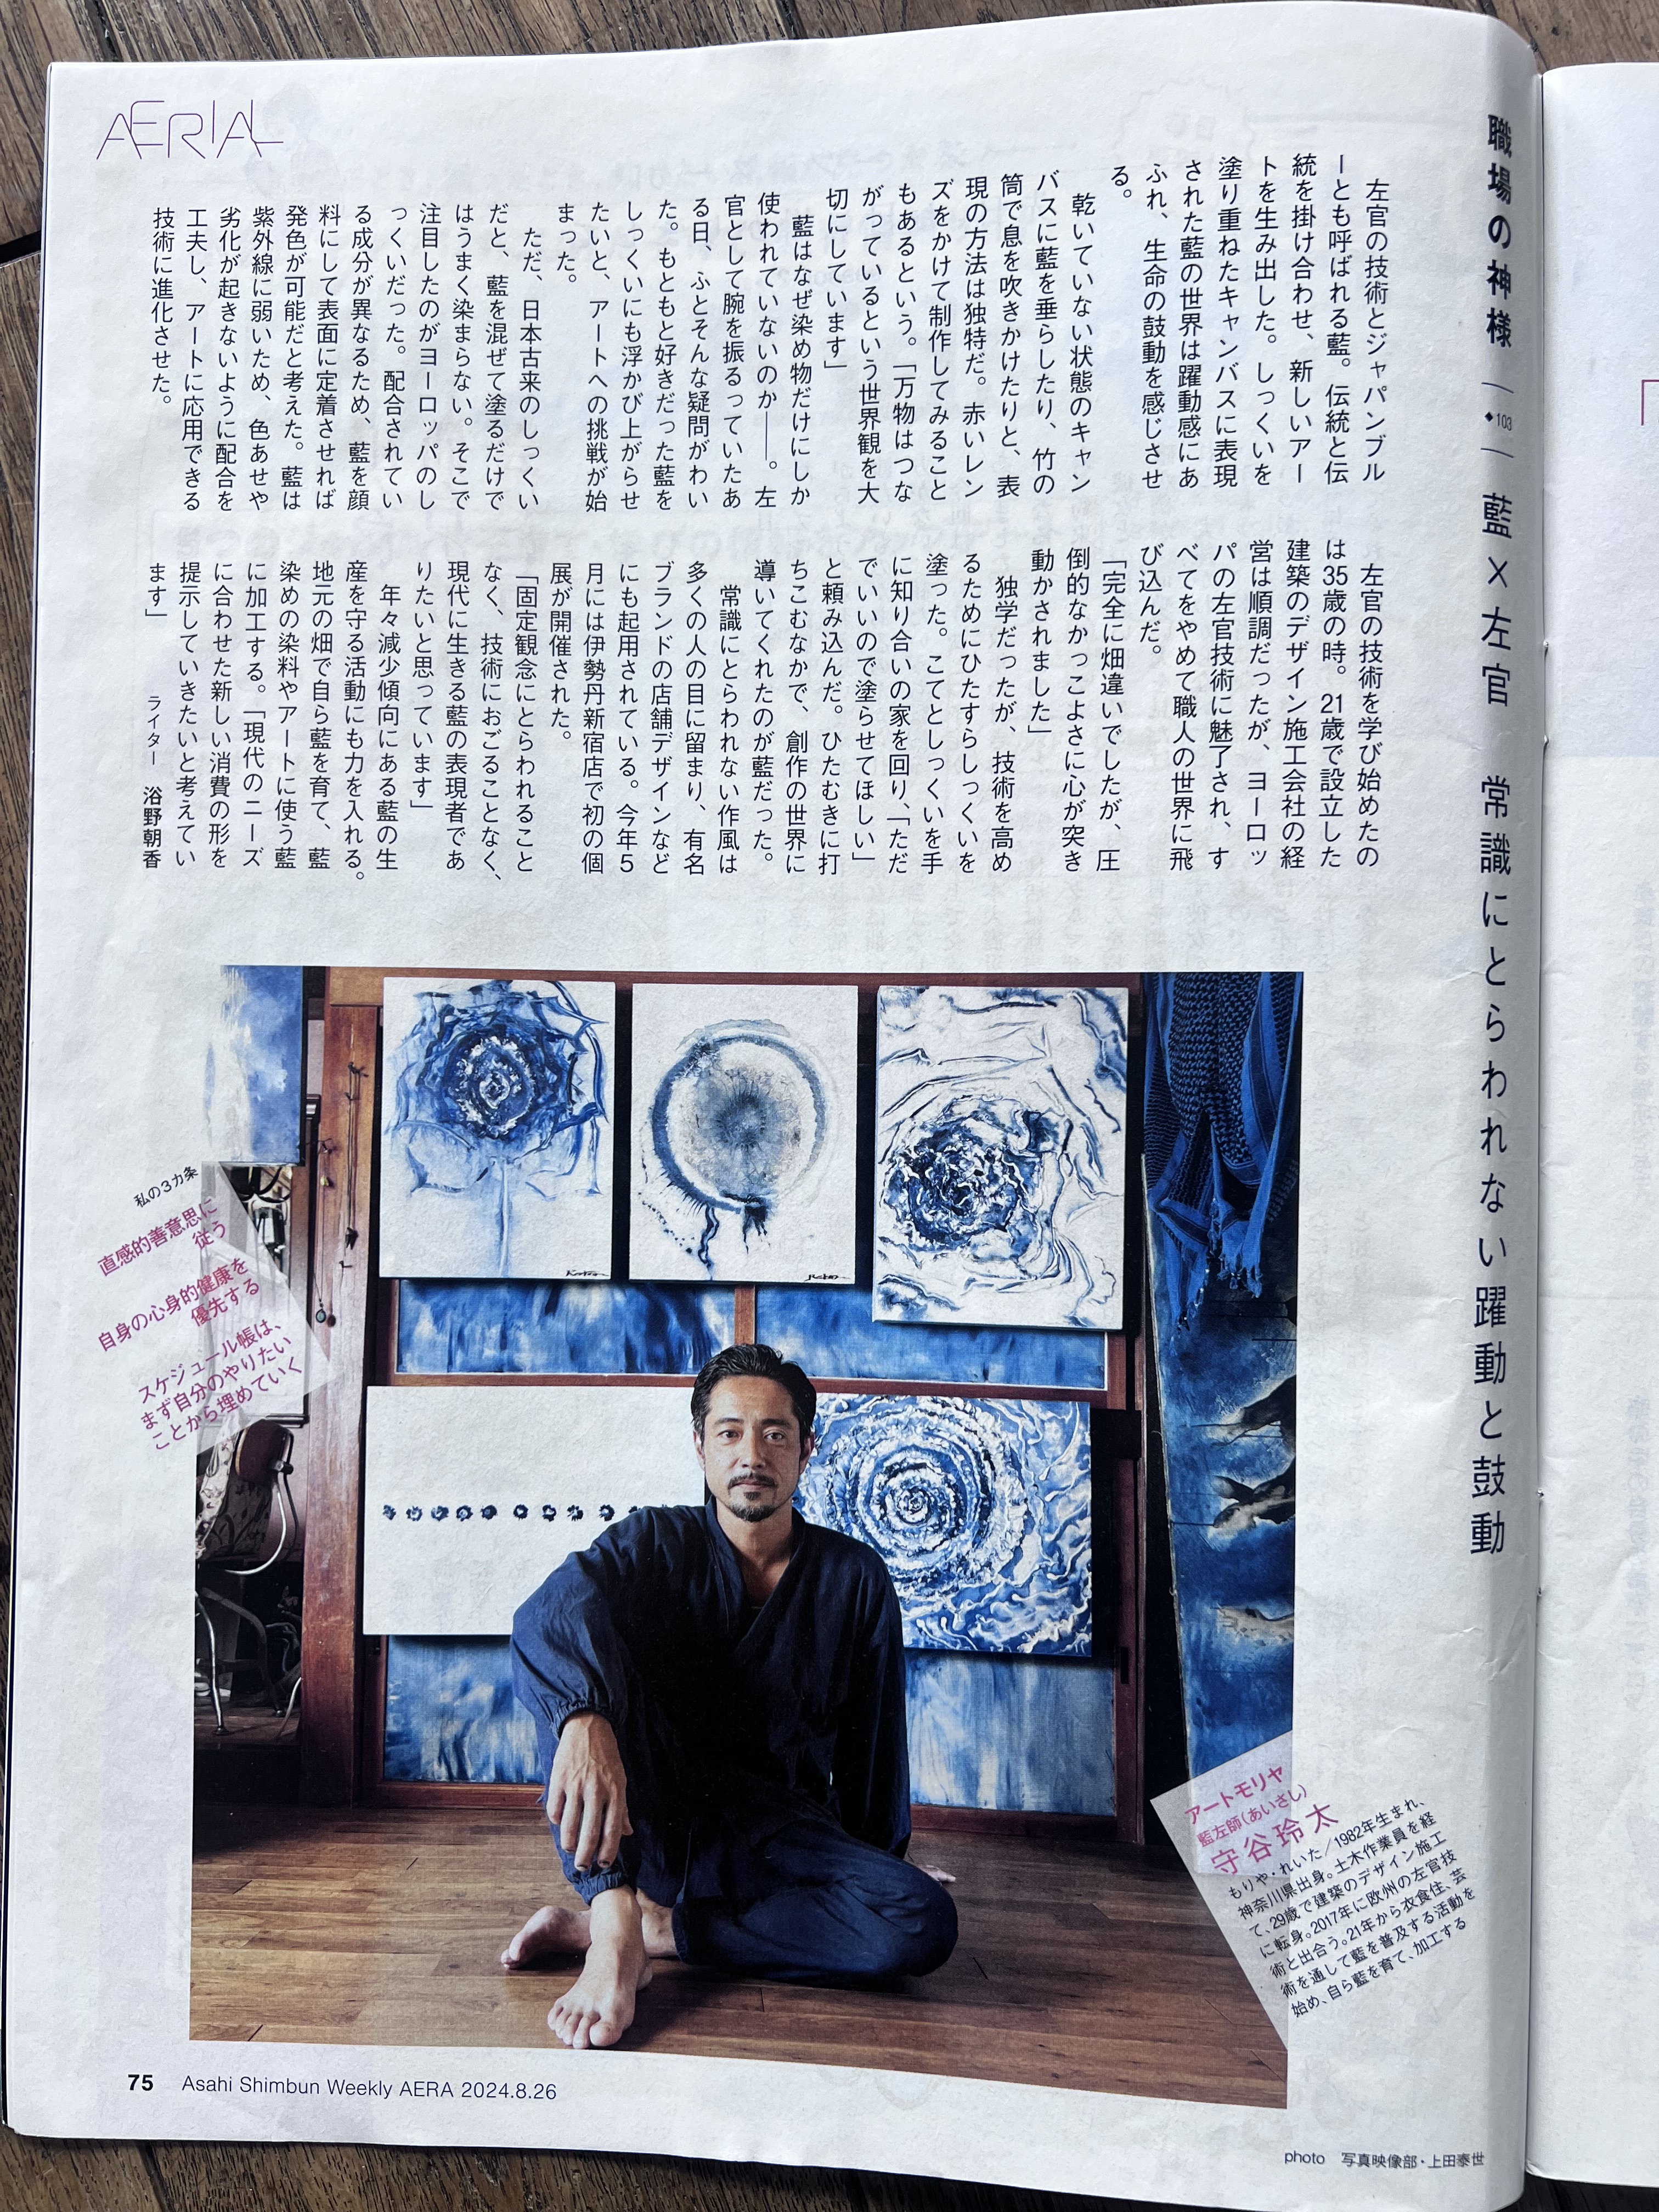 AERIAL
職場の神様
◆103
藍×左官 常識にとらわれない躍動と鼓動
左官の技術とジャパンブル
ーとも呼ばれる藍。伝統と伝
統を掛け合わせ、新しいアー
トを生み出した。しっくいを
塗り重ねたキャンバスに表現
された藍の世界は躍動感にあ
ふれ、生命の鼓動を感じさせ
る。
乾いていない状態のキャン
バスに藍を垂らしたり、竹の
筒で息を吹きかけたりと、表
現の方法は独特だ。赤いレン
ズをかけて制作してみること
もあるという。「万物はつな
がっているという世界観を大
切にしています」
藍はなぜ染め物だけにしか
使われていないのか――。左
官として腕を振るっていたあ
る日、ふとそんな疑問がわい
た。もともと好きだった藍を
しっくいにも浮かび上がらせ
たいと、アートへの挑戦が始
まった。
ただ、日本古来のしっくい
だと、藍を混ぜて塗るだけで
はうまく染まらない。そこで
注目したのがヨーロッパのし
っくいだった。配合されてい
る成分が異なるため、藍を顔
料にして表面に定着させれば
発色が可能だと考えた。藍は
紫外線に弱いため、色あせや
劣化が起きないように配合を
工夫し、アートに応用できる
技術に進化させた。
左官の技術を学び始めたの
は35歳の時。21歳で設立した
建築のデザイン施工会社の経
営は順調だったが、ヨーロッ
パの左官技術に魅了され、す
べてをやめて職人の世界に飛
び込んだ。
「完全に畑違いでしたが、圧
倒的なかっこよさに心が突き
動かされました」
独学だったが、技術を高め
るためにひたすらしっくいを
塗った。こてとしっくいを手
に知り合いの家を回り、「ただ
でいいので塗らせてほしい」
と頼み込んだ。ひたむきに打
ちこむなかで、創作の世界に
導いてくれたのが藍だった。
常識にとらわれない作風は
多くの人の目に留まり、有名
ブランドの店舗デザインなど
にも起用されている。今年5
月には伊勢丹新宿店で初の個
展が開催された。
「固定観念にとらわれること
なく、技術におごることなく、
現代に生きる藍の表現者であ
りたいと思っています」
年々減少傾向にある藍の生
産を守る活動にも力を入れる。
地元の畑で自ら藍を育て、藍
染めの染料やアートに使う藍
に加工する。「現代のニーズ
に合わせた新しい消費の形を
提示していきたいと考えてい
ます」
ライター 浴野朝香
私の3カ条
直感的善意思に
従う
自身の心身的健康を
優先する
スケジュール帳は、
まず自分のやりたい
ことから埋めていく
アートモリヤ
藍左師(あいさし)
守谷玲太
もりや・れいた/1982年生まれ、
神奈川県出身。土木作業員を経
て、29歳で建築のデザイン施工
に転身。2017年に欧州の左官技
術と出合う。21年から衣食住、芸
術を通して藍を普及する活動を
始め、自ら藍を育て、加工する
75 Asahi Shimbun Weekly AERA 2024.8.26
photo 写真映像部・上田泰世